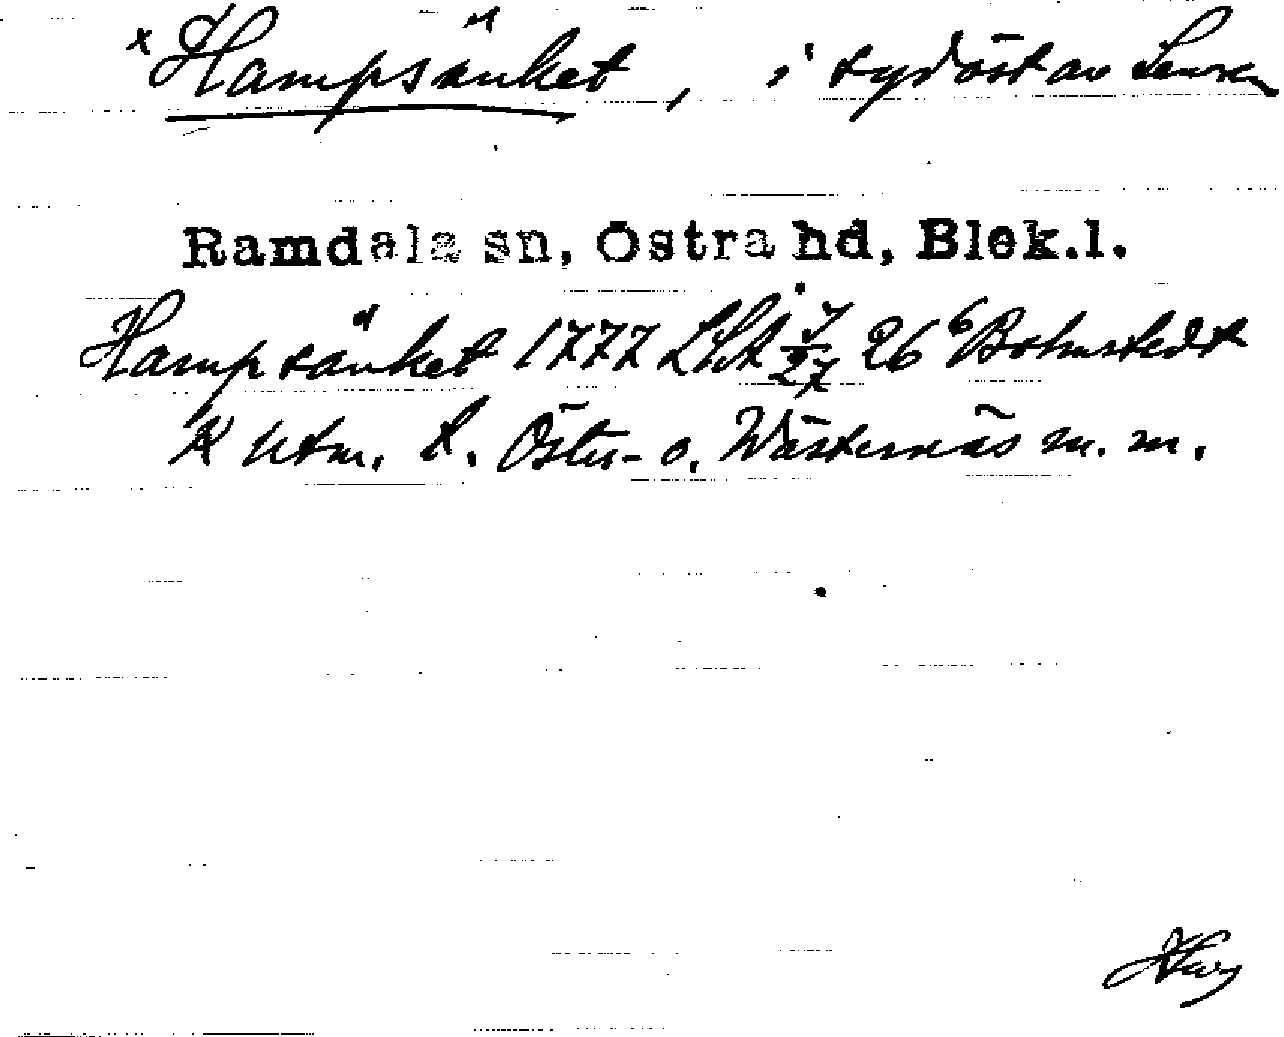 x Hampsänket, i sydöst av Senoren
Ramdala sn, Östra hd, Blek.l.
Hampsänket 1777 LSA 7/27 26 6 Bohmstedt
K utm. t. Öster- o. Wästernäs m. m.